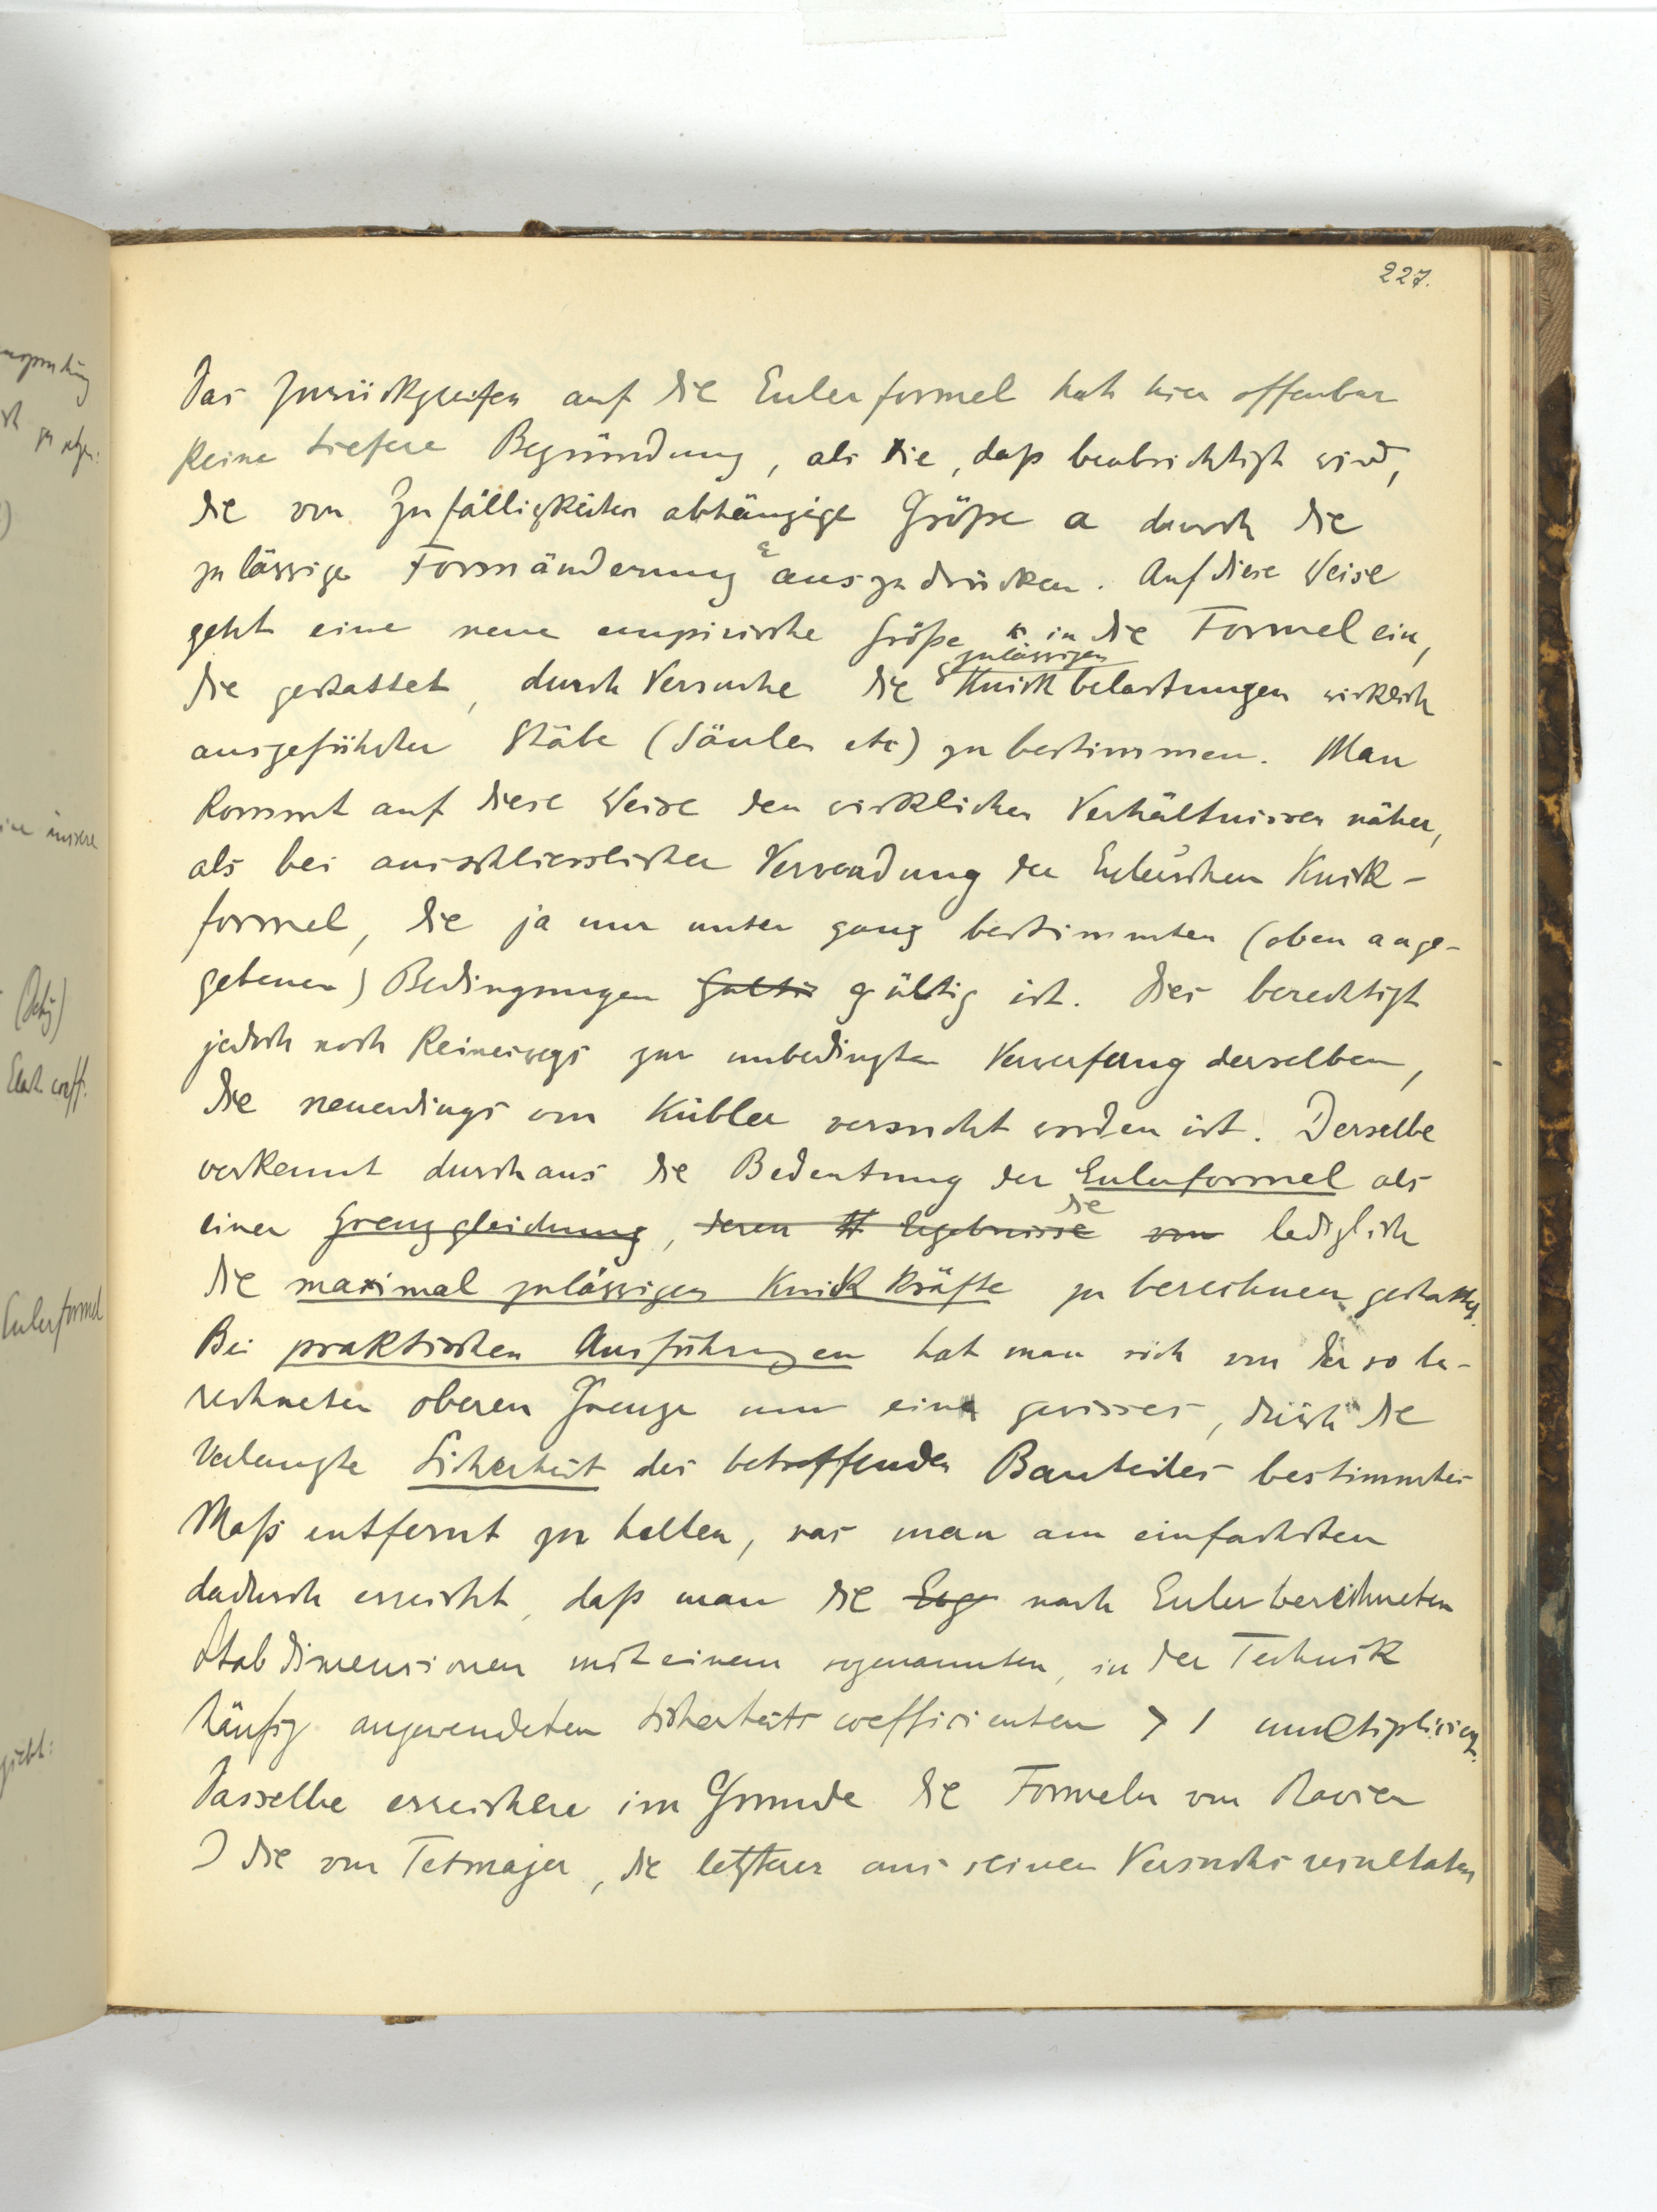 227.
Das Zurückgreifen auf die Eulerformel hat hier offenbar
keine tiefere Begründung, als die, daß beabsichtigt wird,
die von Zufälligkeiten abhängige Größe a durch die
zulässige Formänderung ε auszudrücken. Auf diese Weise
geht eine neue empirische Größe in die Formel ein,
die gestattet, durch Versuche die zulässigen Knickbelastungen wirklich
ausgeführter Stäbe (Säulen etc) zu bestimmen. Man
kommt auf diese Weise den wirklichen Verhältnissen näher,
als bei ausschliesslicher Verwendung der Euler'schen Knick-
formel, die ja nur unter ganz bestimmten (oben ange-
gebenen) Bedingungen gülti gültig ist. Dies berechtigt
jedoch noch keineswegs zur unbedingten Verwerfung derselben,
die neuerdings von Kübler versucht worden ist. Derselbe
verkennt durchaus die Bedeutung der Eulerformel als
einer Grenzgleichung, deren Ergebnisse die von lediglich
die maximal zulässigen Knickkräfte zu berechnen gestattet.
Bei praktischen Ausführungen hat man sich von der so be-
rechneten oberen Grenze um ein gewisses, durch die
verlangte Sicherheit des betreffenden Bauteiles bestimmtes
Maß entfernt zu halten, was man am einfachsten
dadurch erreicht, daß man die Erg nach Euler berechneten
Stabdimensionen mit einem sogenannten, in der Technik
häufig angewendeten Sicherheitscoefficienten > 1 multipliciert.
Dasselbe erreichen im Grunde die Formeln von Navier
die von Tetmajer, die letzterer aus seinen Versuchsresultaten
Elast. coeff.
Eulerformel